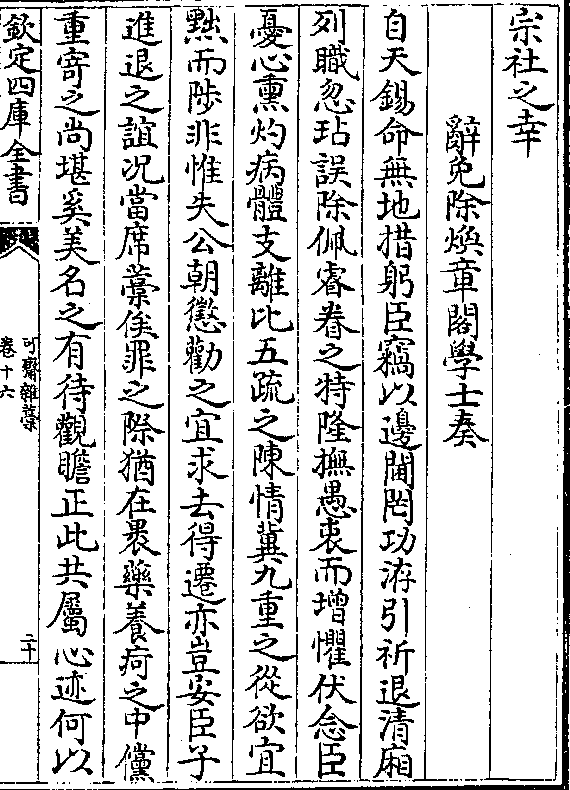 宗社之幸
辭免除煥章閣學士奏
自天錫命無地措躬臣竊以邊閫罔功洊引祈退清廂
列職忽玷誤除佩睿眷之特隆撫愚衷而增懼伏念臣
憂心熏灼病體支離比五疏之陳情冀九重之從欲宜
黜而陟非惟失公朝懲勸之宜求去得遷亦豈安臣子
進退之誼况當席藁俟罪之際猶在裹藥養疴之中儻
重寄之尚堪奚美名之有待觀瞻正此共屬心迹何以
欽定四庫全書
可齋雜藁
卷十六
二十